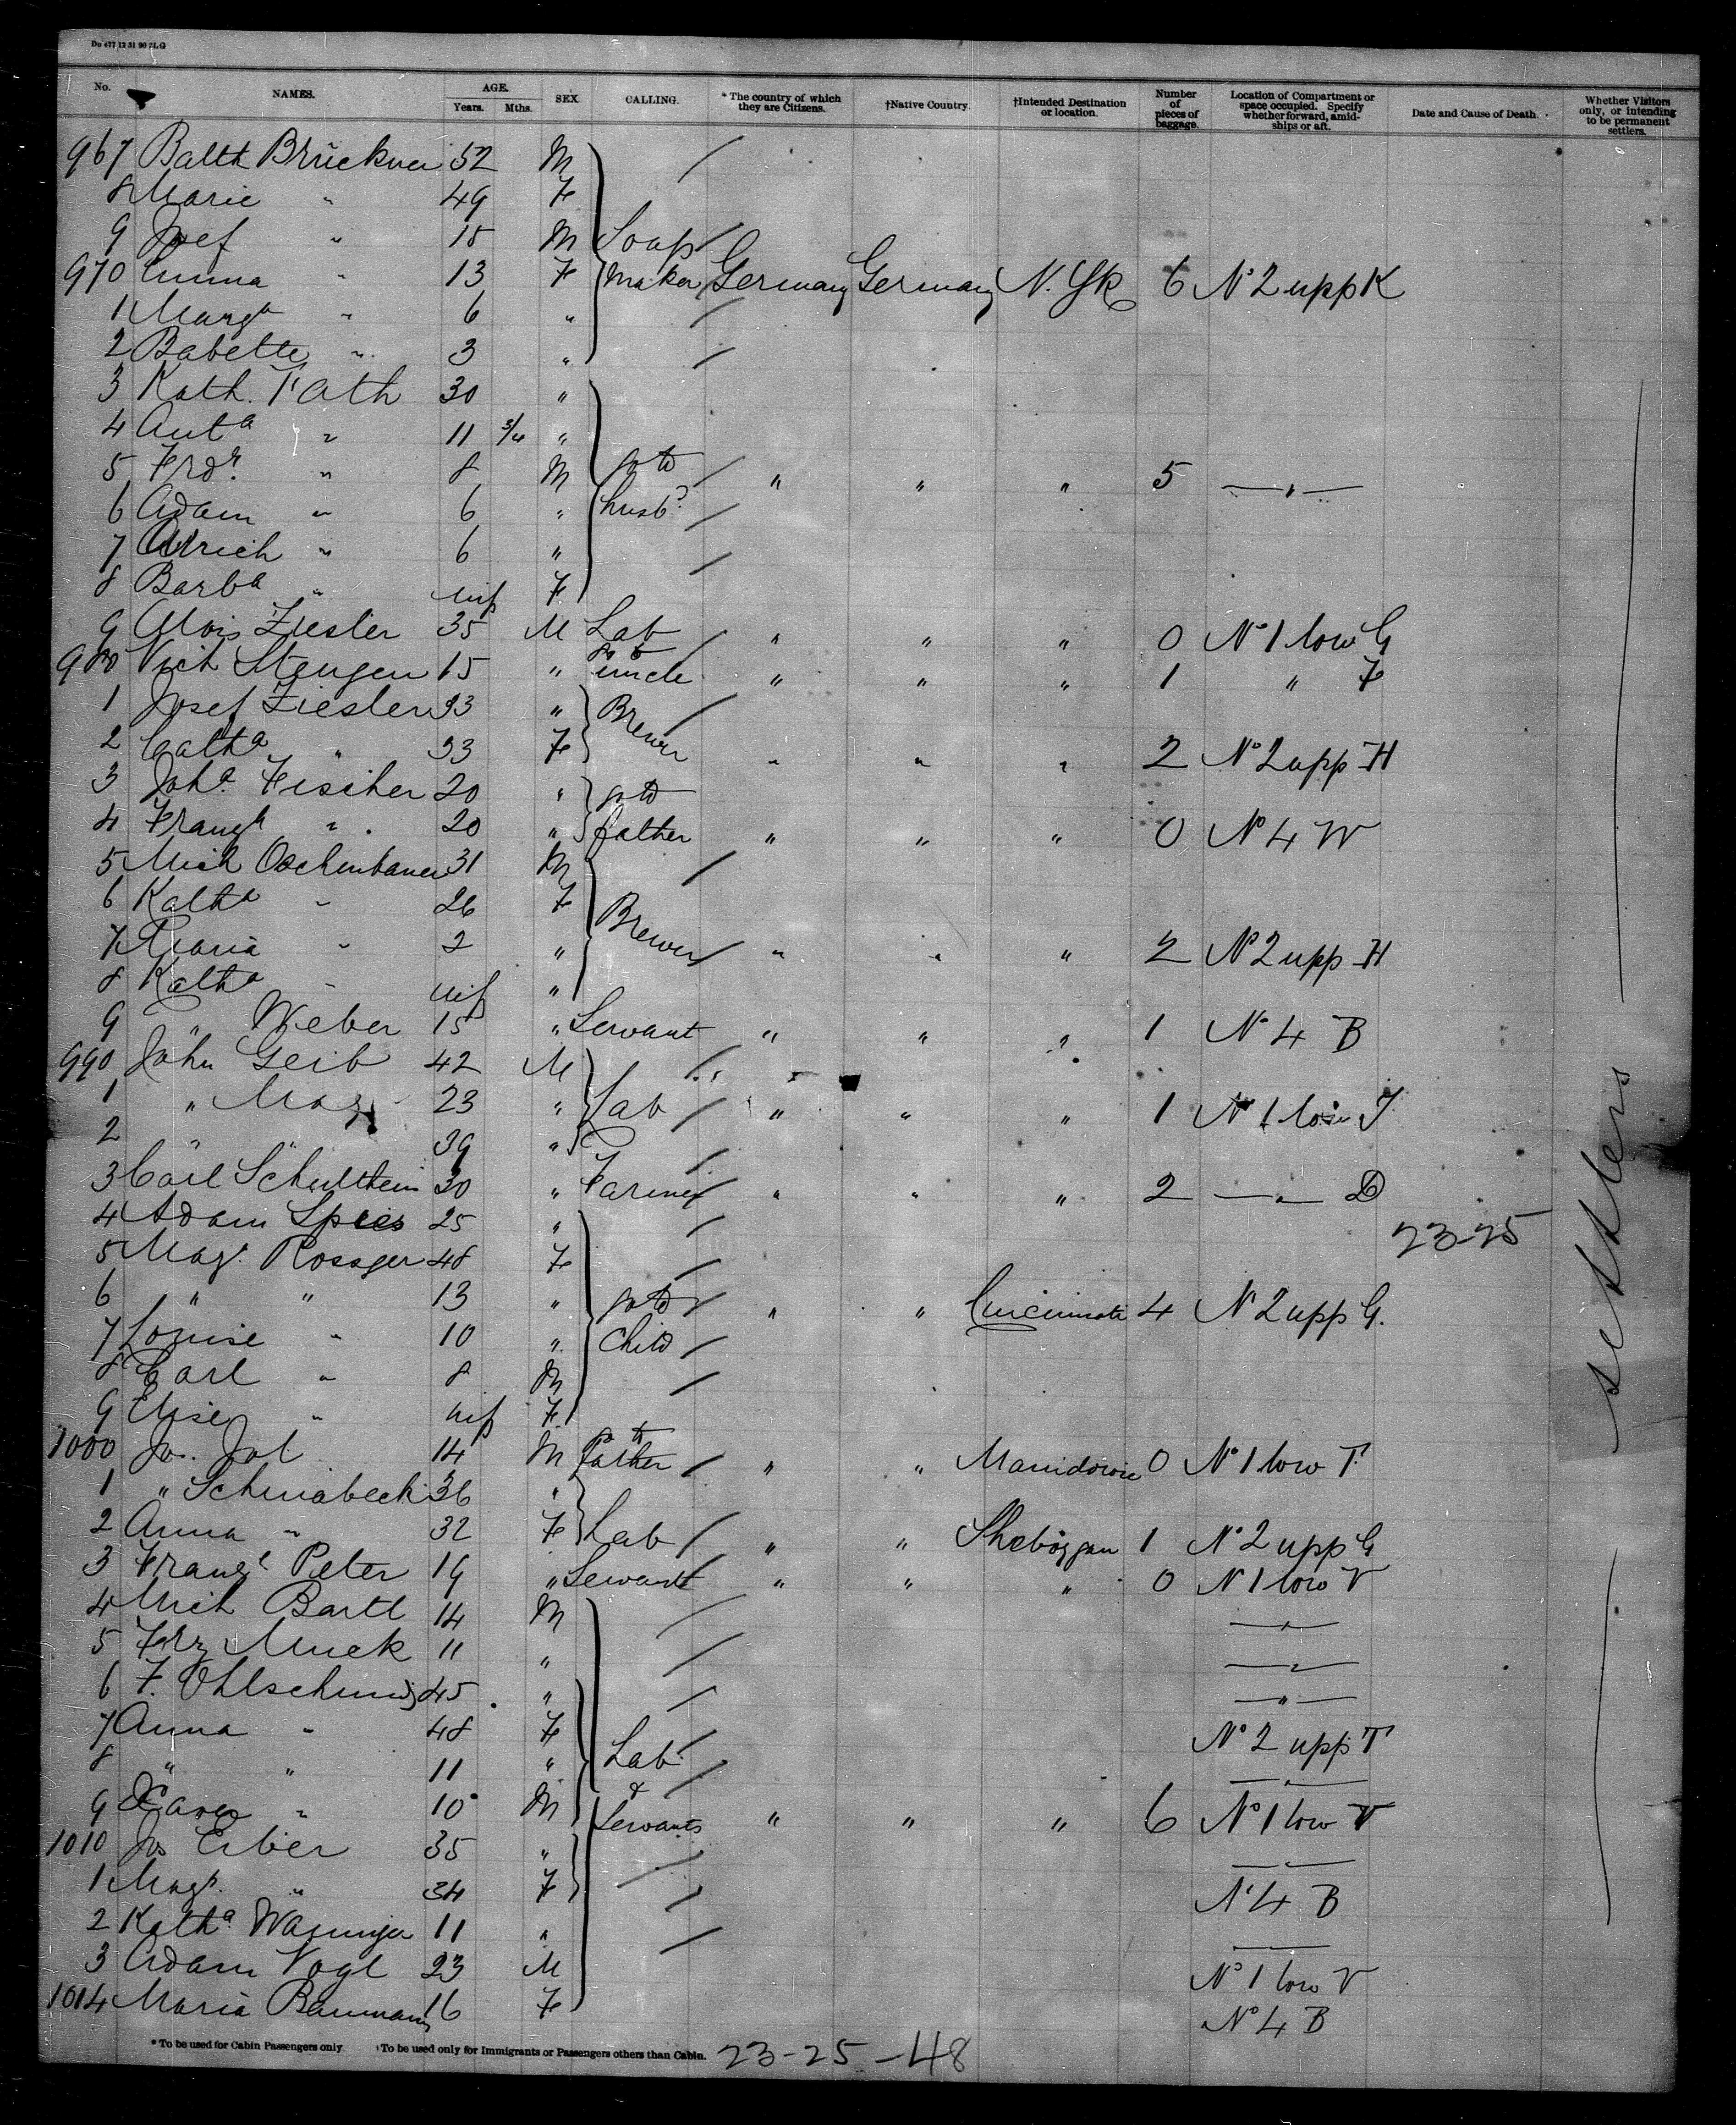 Do 477 12 31 90 SLG
No. NAMES. AGE. Years. Mths. SEX CALLING. * The country of which they are Citizens. †Native Country. †Intended Destination or location. Number of pieces of baggage. Location of Compartment or space occupied. Specify whether forward, amidships or aft. Date and Cause of Death. Whether Visitors only, or intending to be permanent settlers.
967 Balth Brückner 52 M
8 Marie " 49 F
9 Josef " 15 M Soap
970 Emma " 13 F Maker Germany Germany N. Yk 6 No 2 upp K
1 Marg a " 6 "
2 Babette " 3 "
3 Kath. Fath 30 "
4 " 11 3/4 "
5 Frdr. " 8 M go to " " " 5 — " —
6 Adam " 6 " husbd
7 Ulrich " 6 "
8 Barba " inf F
9 Alois Ziesler 35 M Lab " " " 0 No 1 low G
980 Stengen 15 " go to uncle " " " 1 " F
1 Josef Ziesler 33 " Brewer
2 " 33 F " " " 2 No 2 upp H
3 Joha Fischer 20 " go to
4 " 20 " father " " " 0 No 4 W
5 Mich 31 M
6 Katha " 26 F
7 Maria " 2 " Brewer " " " 2 No 2 upp H
8 Katha " inf "
9 " Weber 15 " Servant " " " 1 No 4 B
990 John Geib 42 M
1 " 23 " Lab " " " 1 No 1 low
2 " " 39 "
3 Carl Schultheis 30 " Farmer " " " 2 — " — D
4 Adam Spies 25 " 23-25
5 Magr. Rossger 48 F
6 " " 13 " go to " " Cincinnati 4 No 2 upp G.
7 Louise " 10 " child
8 Carl " 8 M
9 Elise " inf F
1000 Jos. 14 M go to father " " 0 No 1 low T
1 " Schwabeck 36 "
2 Anna " 32 F Lab " " Sheboygan 1 No 2 upp G
3 Peter 19 " Servant " " " 0 No 1 low V
4 Mich Bartl 14 M — " —
5 Muck 11 " — " —
6 F. Ohlschmidt 45 " — " —
7 Anna " 48 F No 2 upp T
8 " " 11 " Lab — " —
9 Xaver " 10 M & Servants " " " 6 No 1 low V
1010 Jos Erber 35 " — " —
1 Magr. " 34 F No 4 B
2 Katha 11 " — " —
3 Adam Vogl 23 M No 1 low V
1014 Maria Baumann 16 F No 4 B
settlers
* To be used for Cabin Passengers only. †To be used only for Immigrants or Passengers others than Cabin. 23-25-48